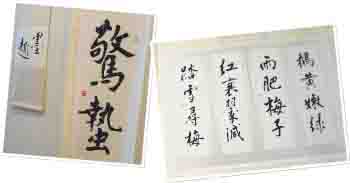 驚蟄
鵝黃嫩綠
雨肥梅子
紅衰翠減
踏雪尋梅